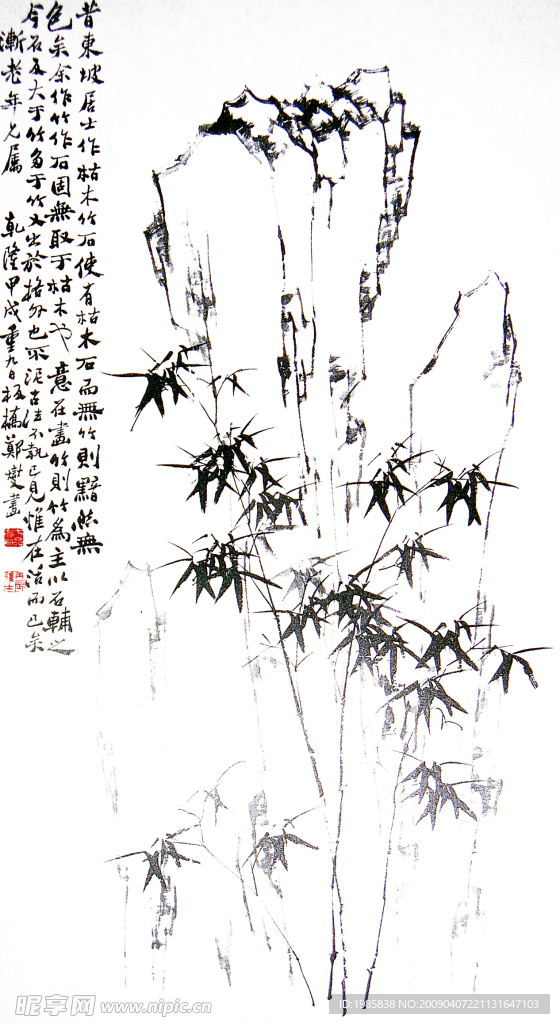 昔東坡居士作枯木竹石使有枯木石而無竹則黯然無
色矣余作竹作石固無取于枯木也意在畫竹則竹為主以石輔之
今石反大于竹多于竹又出於格外也不泥古法不執己見惟在活而已矣
漸老年兄屬 乾隆甲戌重九日板橋鄭燮畫
昵享网 www.nipic.cn
ID:1985838 NO:20090407221131647103